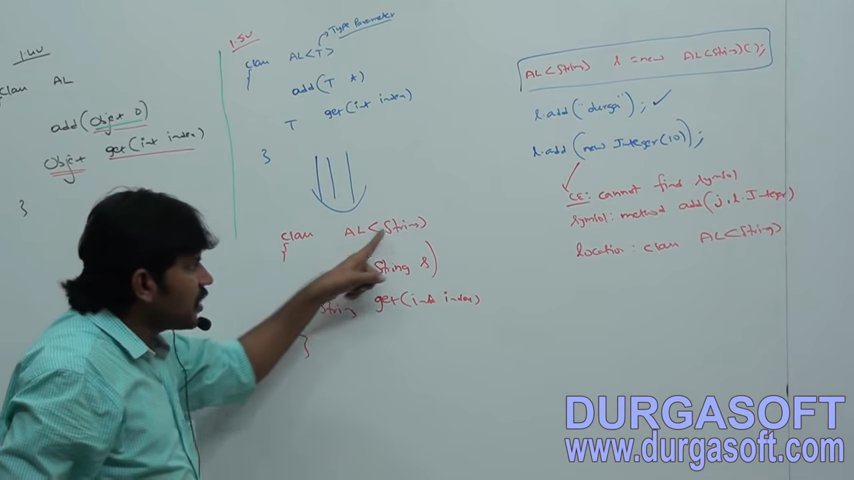 1.4V
class AL
{
add(Object o)
Object get(int index)
}
1.5V
Type Parameter
class AL<T>
{
add(T t)
T get(int index)
}
class AL<String>
{
String s)
String get(int index)
}
AL<String> l = new AL<String>();
l.add("durga"); ✓
l.add(new Integer(10));
CE: cannot find symbol
symbol: method add(j.l.Integer)
location: class AL<String>
DURGASOFT
www.durgasoft.com